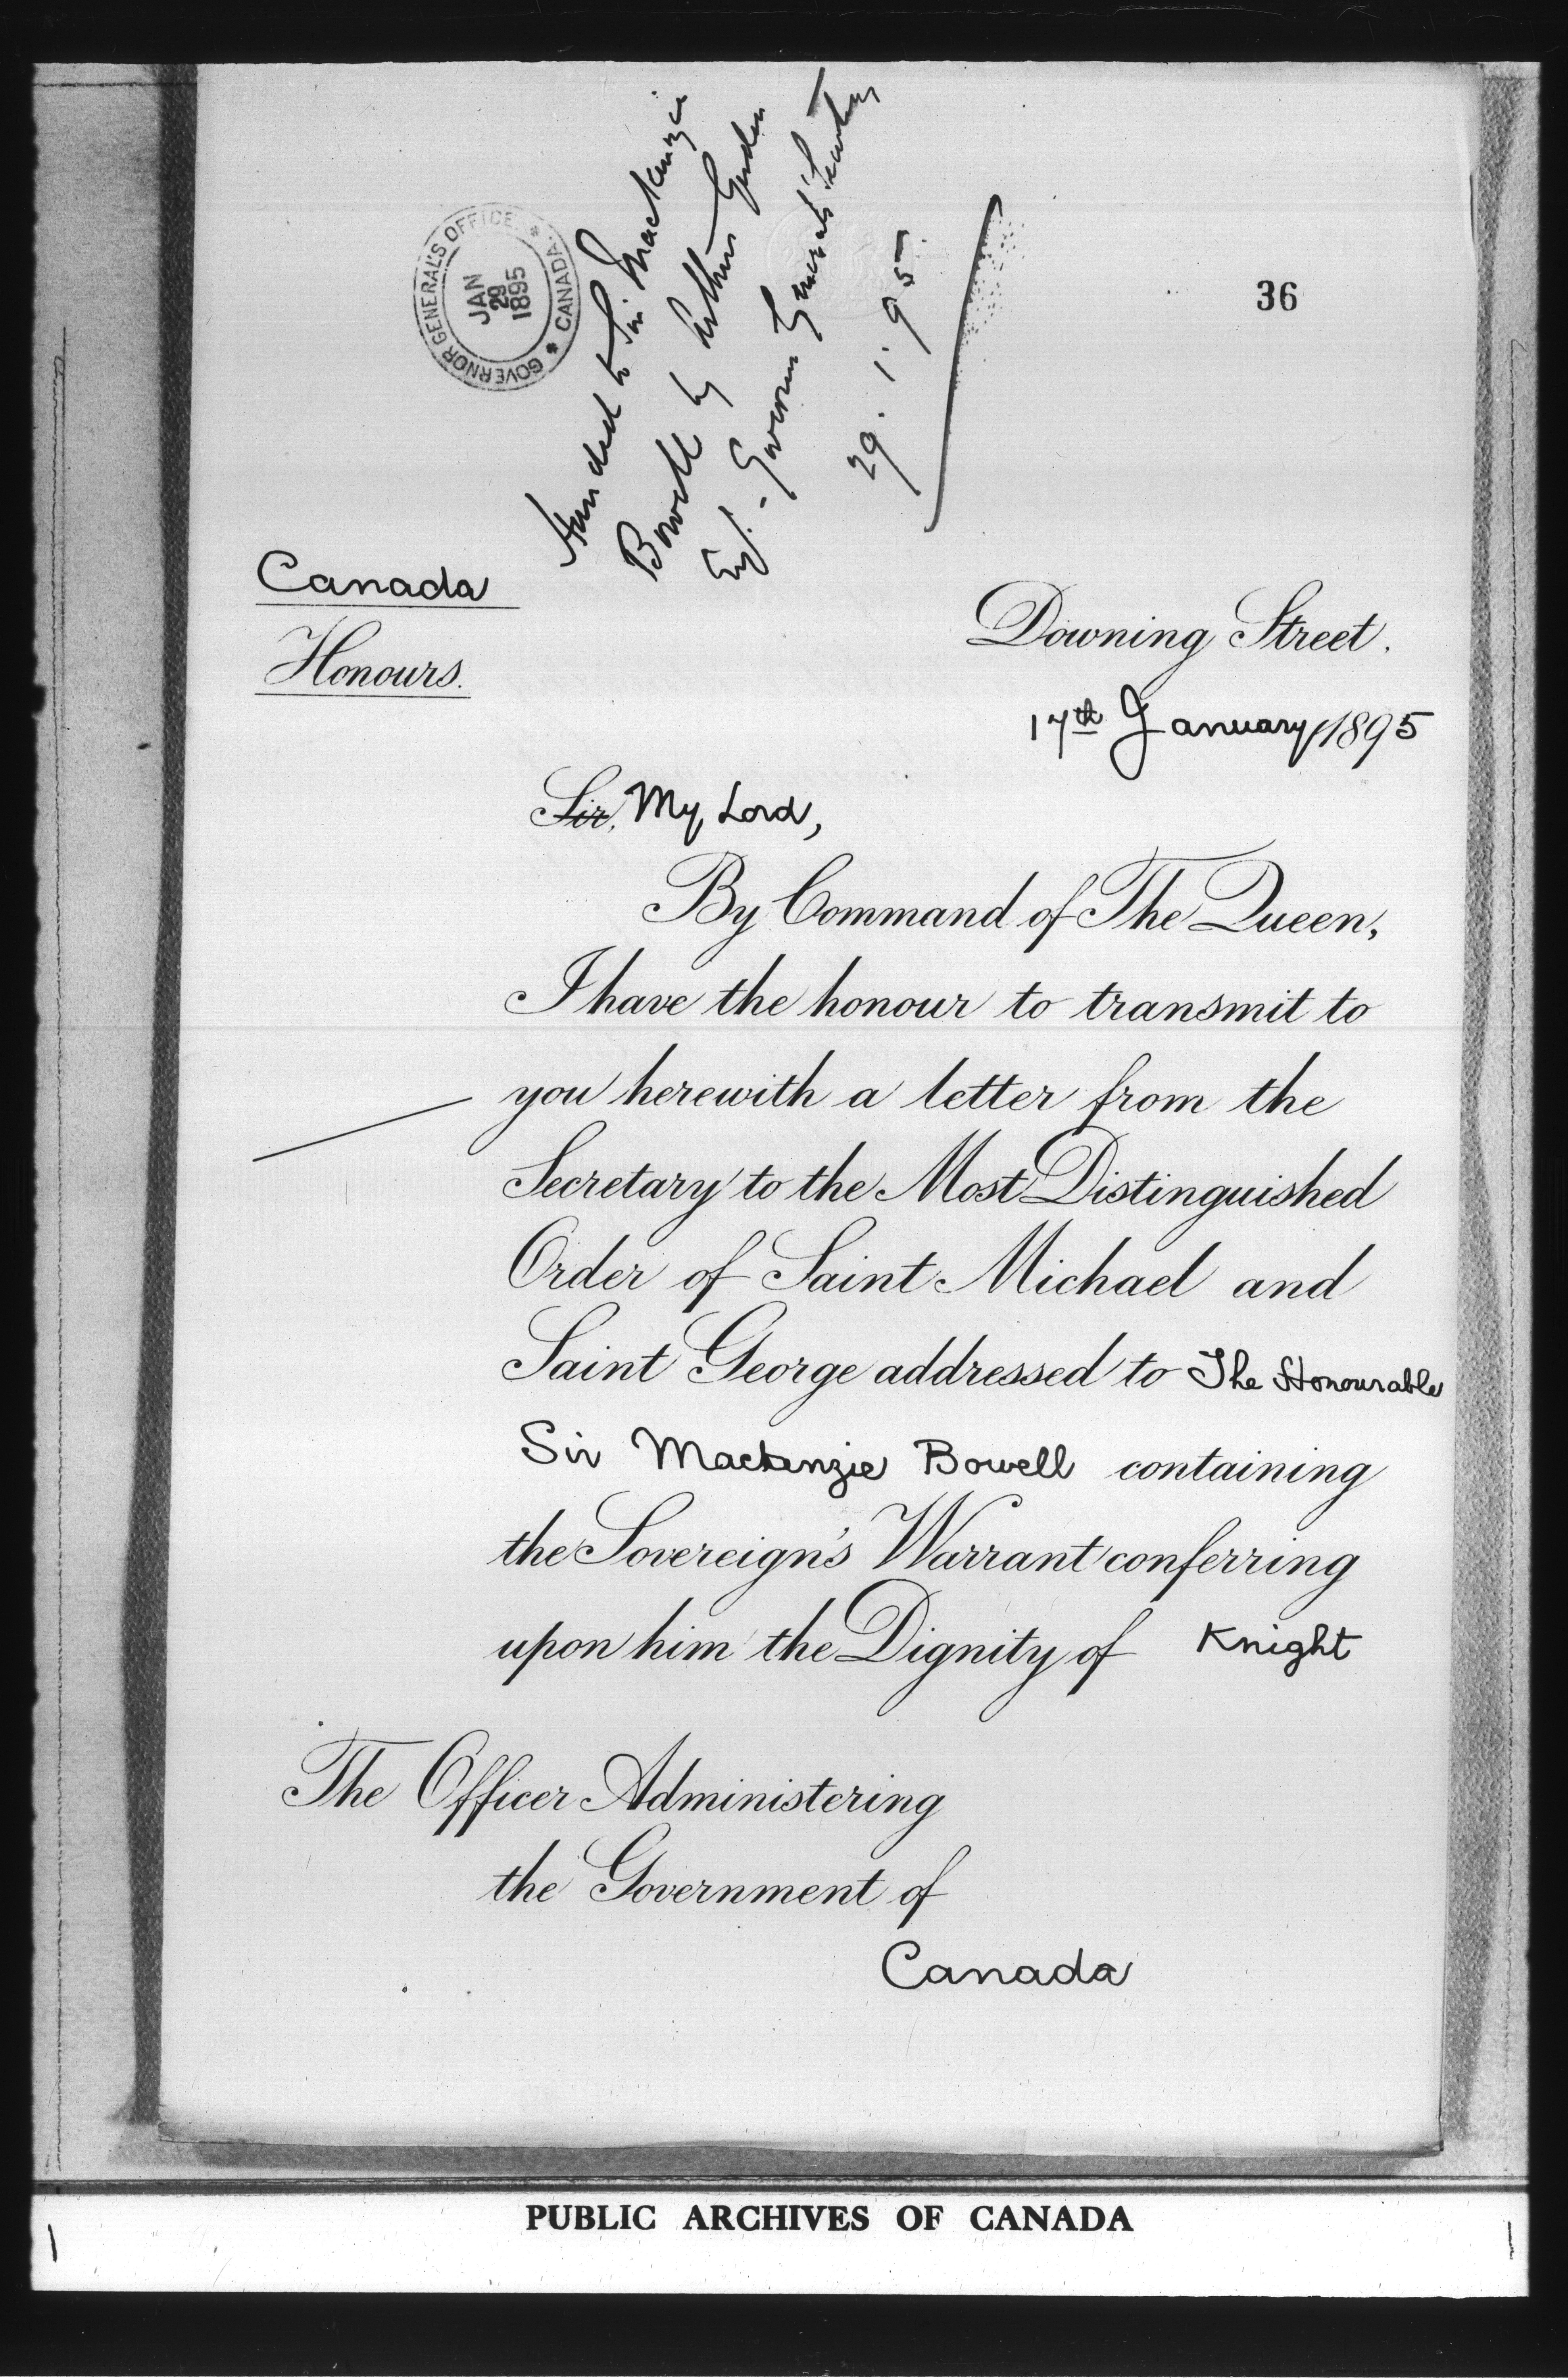 GOVERNOR GENERAL'S OFFICE * CANADA *
JAN
29
1895
Handed to Sir Mackenzie
Bowell by Arthur Gordon
Esq. - Governor General's Secretary
29. 1. 95.
36
Canada
Honours.
Downing Street.
17th January, 1895
Sir, My Lord,
By Command of The Queen,
I have the honour to transmit to
you herewith a letter from the
Secretary to the Most Distinguished
Order of Saint Michael and
Saint George addressed to The Honourable
Sir Mackenzie Bowell containing
the Sovereign's Warrant conferring
upon him the Dignity of Knight
The Officer Administering
the Government of
Canada
PUBLIC ARCHIVES OF CANADA